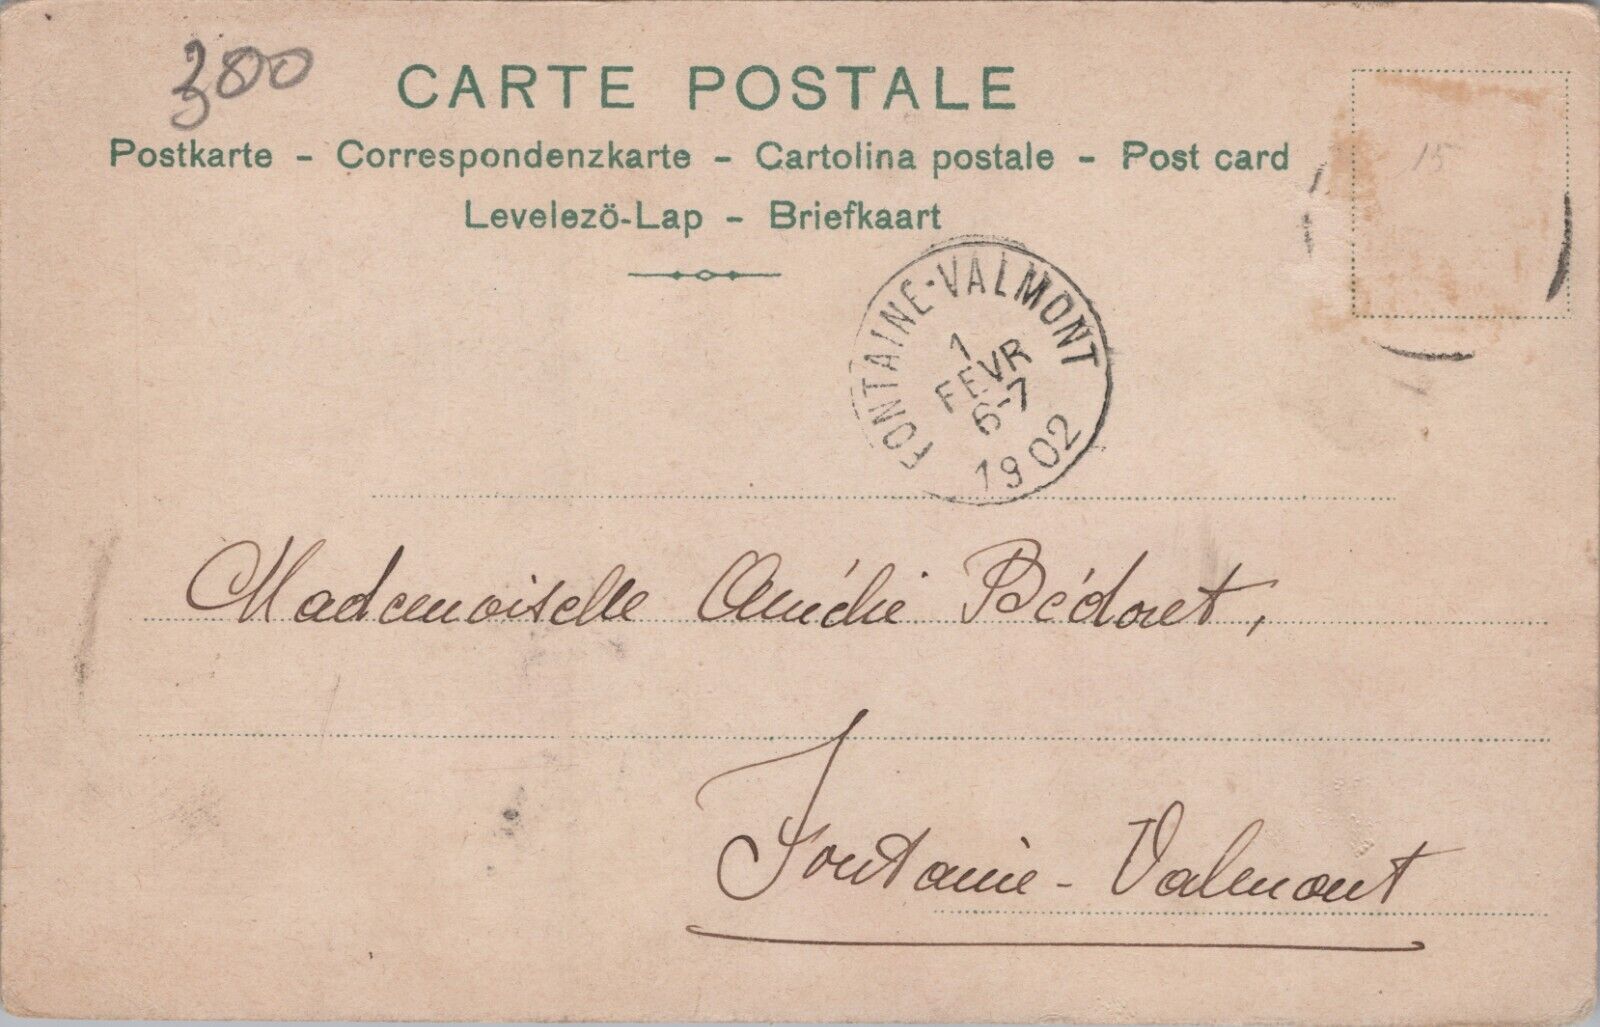 300
CARTE POSTALE
Postkarte – Correspondenzkarte – Cartolina postale – Post card
Levelezö-Lap – Briefkaart
15
FONTAINE-VALMONT
1
FEVR
6-7
1902
Mademoiselle Amélie Bédoret,
Fontaine-Valmont